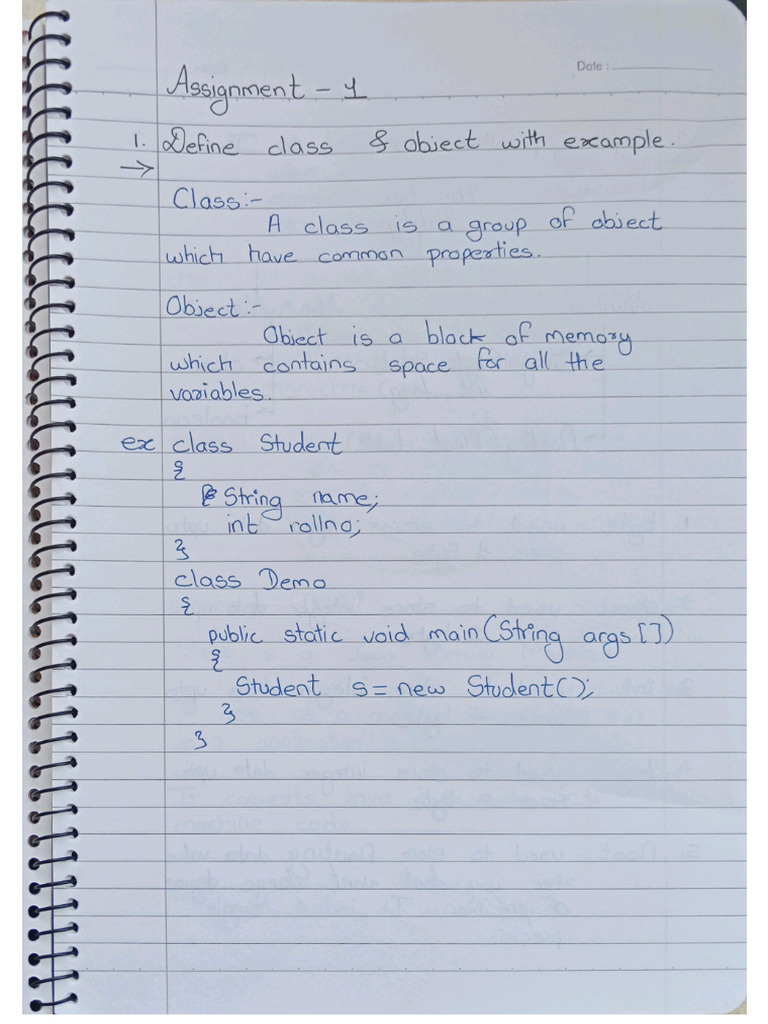 Date :
Assignment - 1
1. Define class & object with example.
→
Class:-
A class is a group of object
which have common properties.
Object:-
Object is a block of memory
which contains space for all the
variables.
ex class Student
{
String name;
int rollno;
}
class Demo
{
public static void main(String args[])
{
Student s = new Student();
}
}